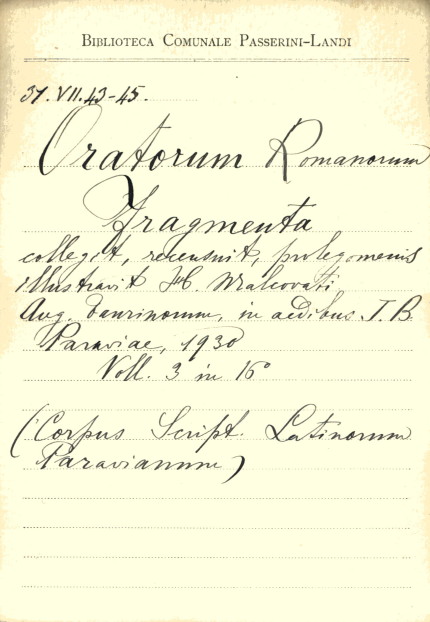 BIBLIOTECA COMUNALE PASSERINI-LANDI
37.VII.43-45.
Oratorum Romanorum
Fragmenta
collegit, recensuit, prolegomenis
illustravit H. Malcovati
Aug. Taurinorum, in aedibus I. B.
Paraviae, 1930
Voll. 3 in 16°
(Corpus Script. Latinorum
Paravianum)